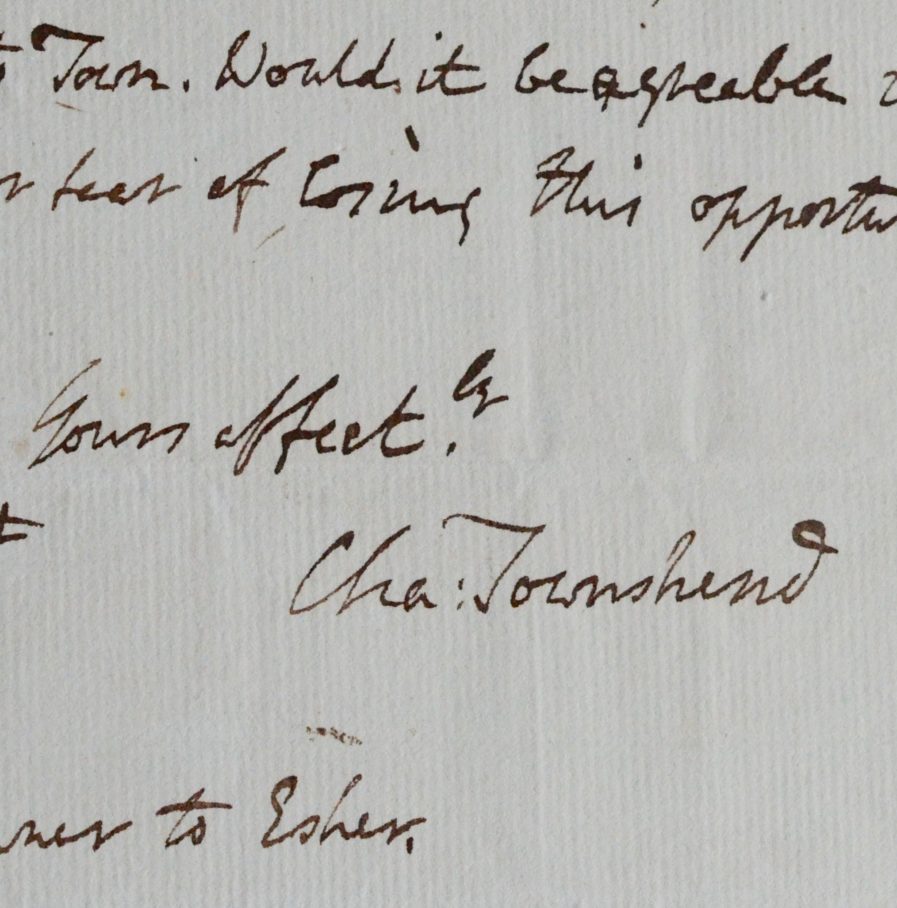 Town. Would it be agreeable
fear of losing this opportu
Yours affect.ly
Cha: Townshend
to Esher.